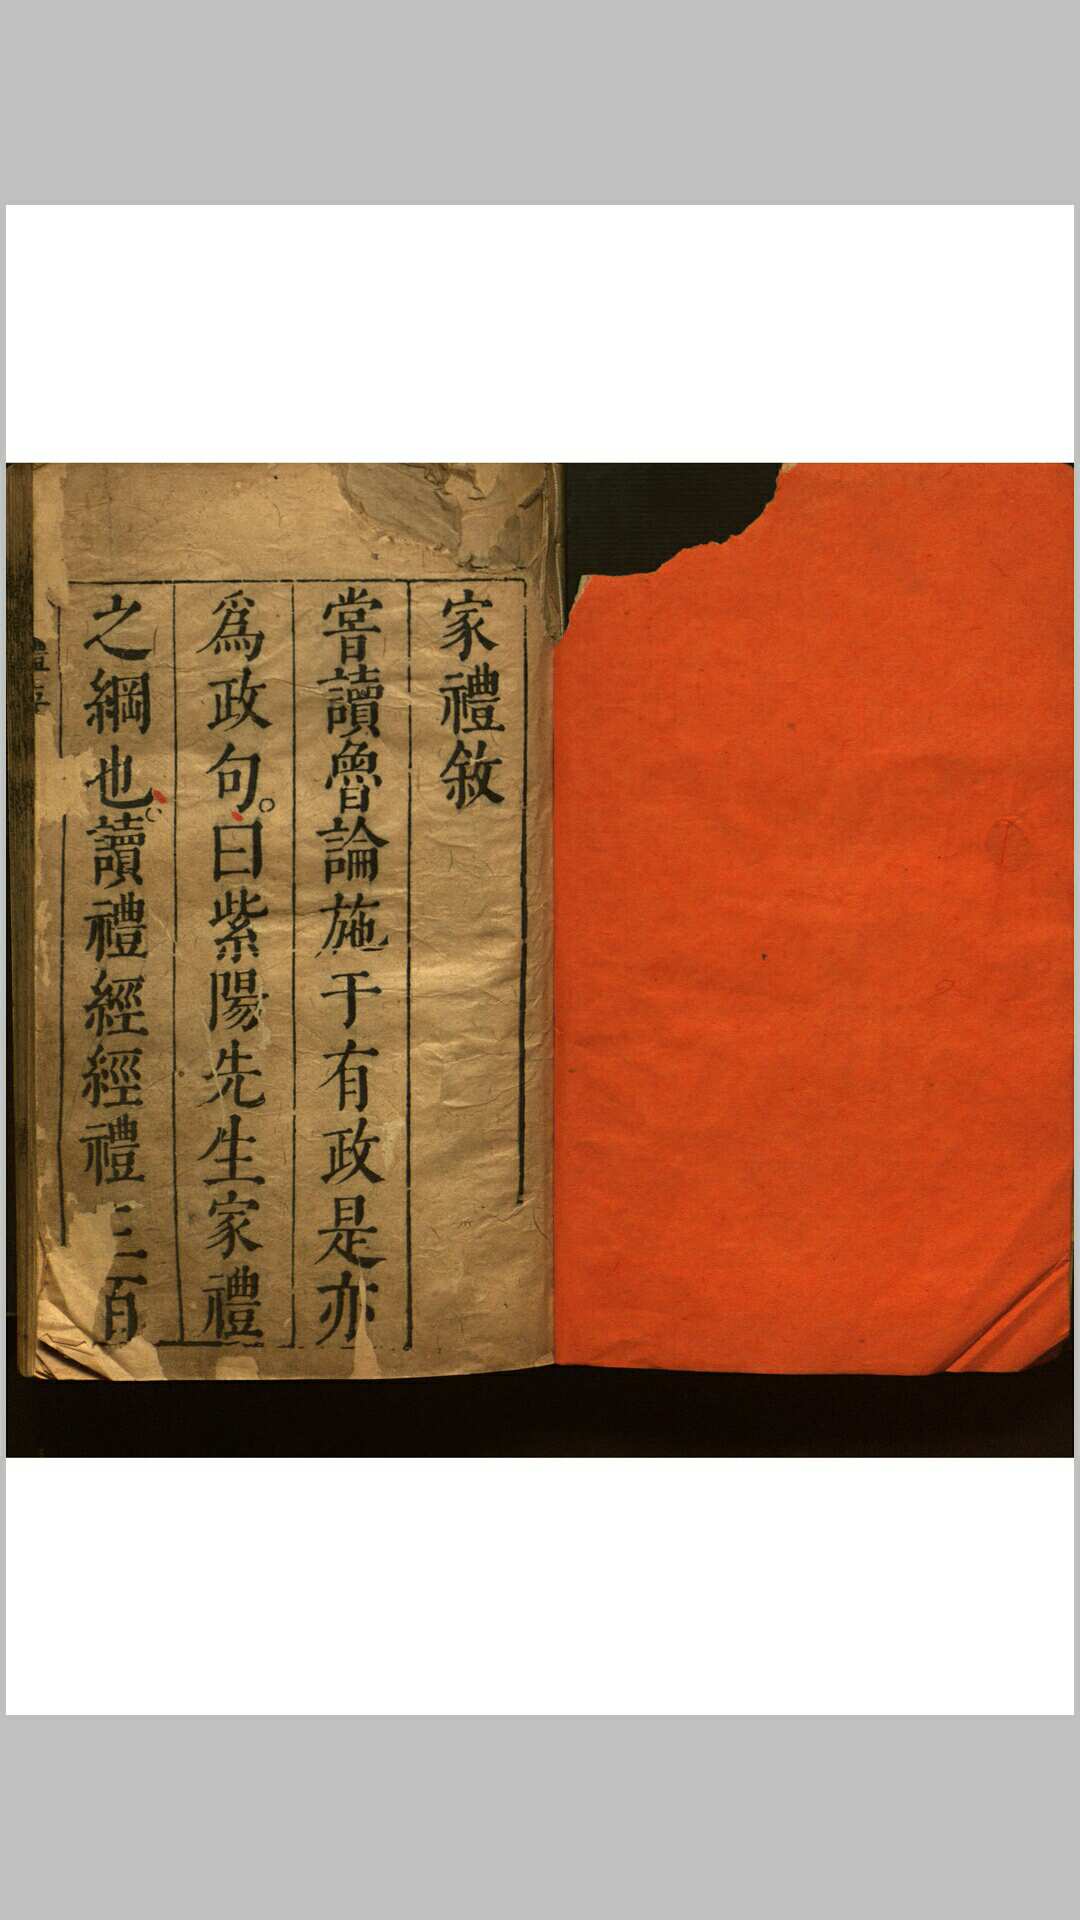 家禮敘
甞讀魯論施于有政是亦
爲政句。曰紫陽先生家禮
之綱也。讀禮經經禮三百